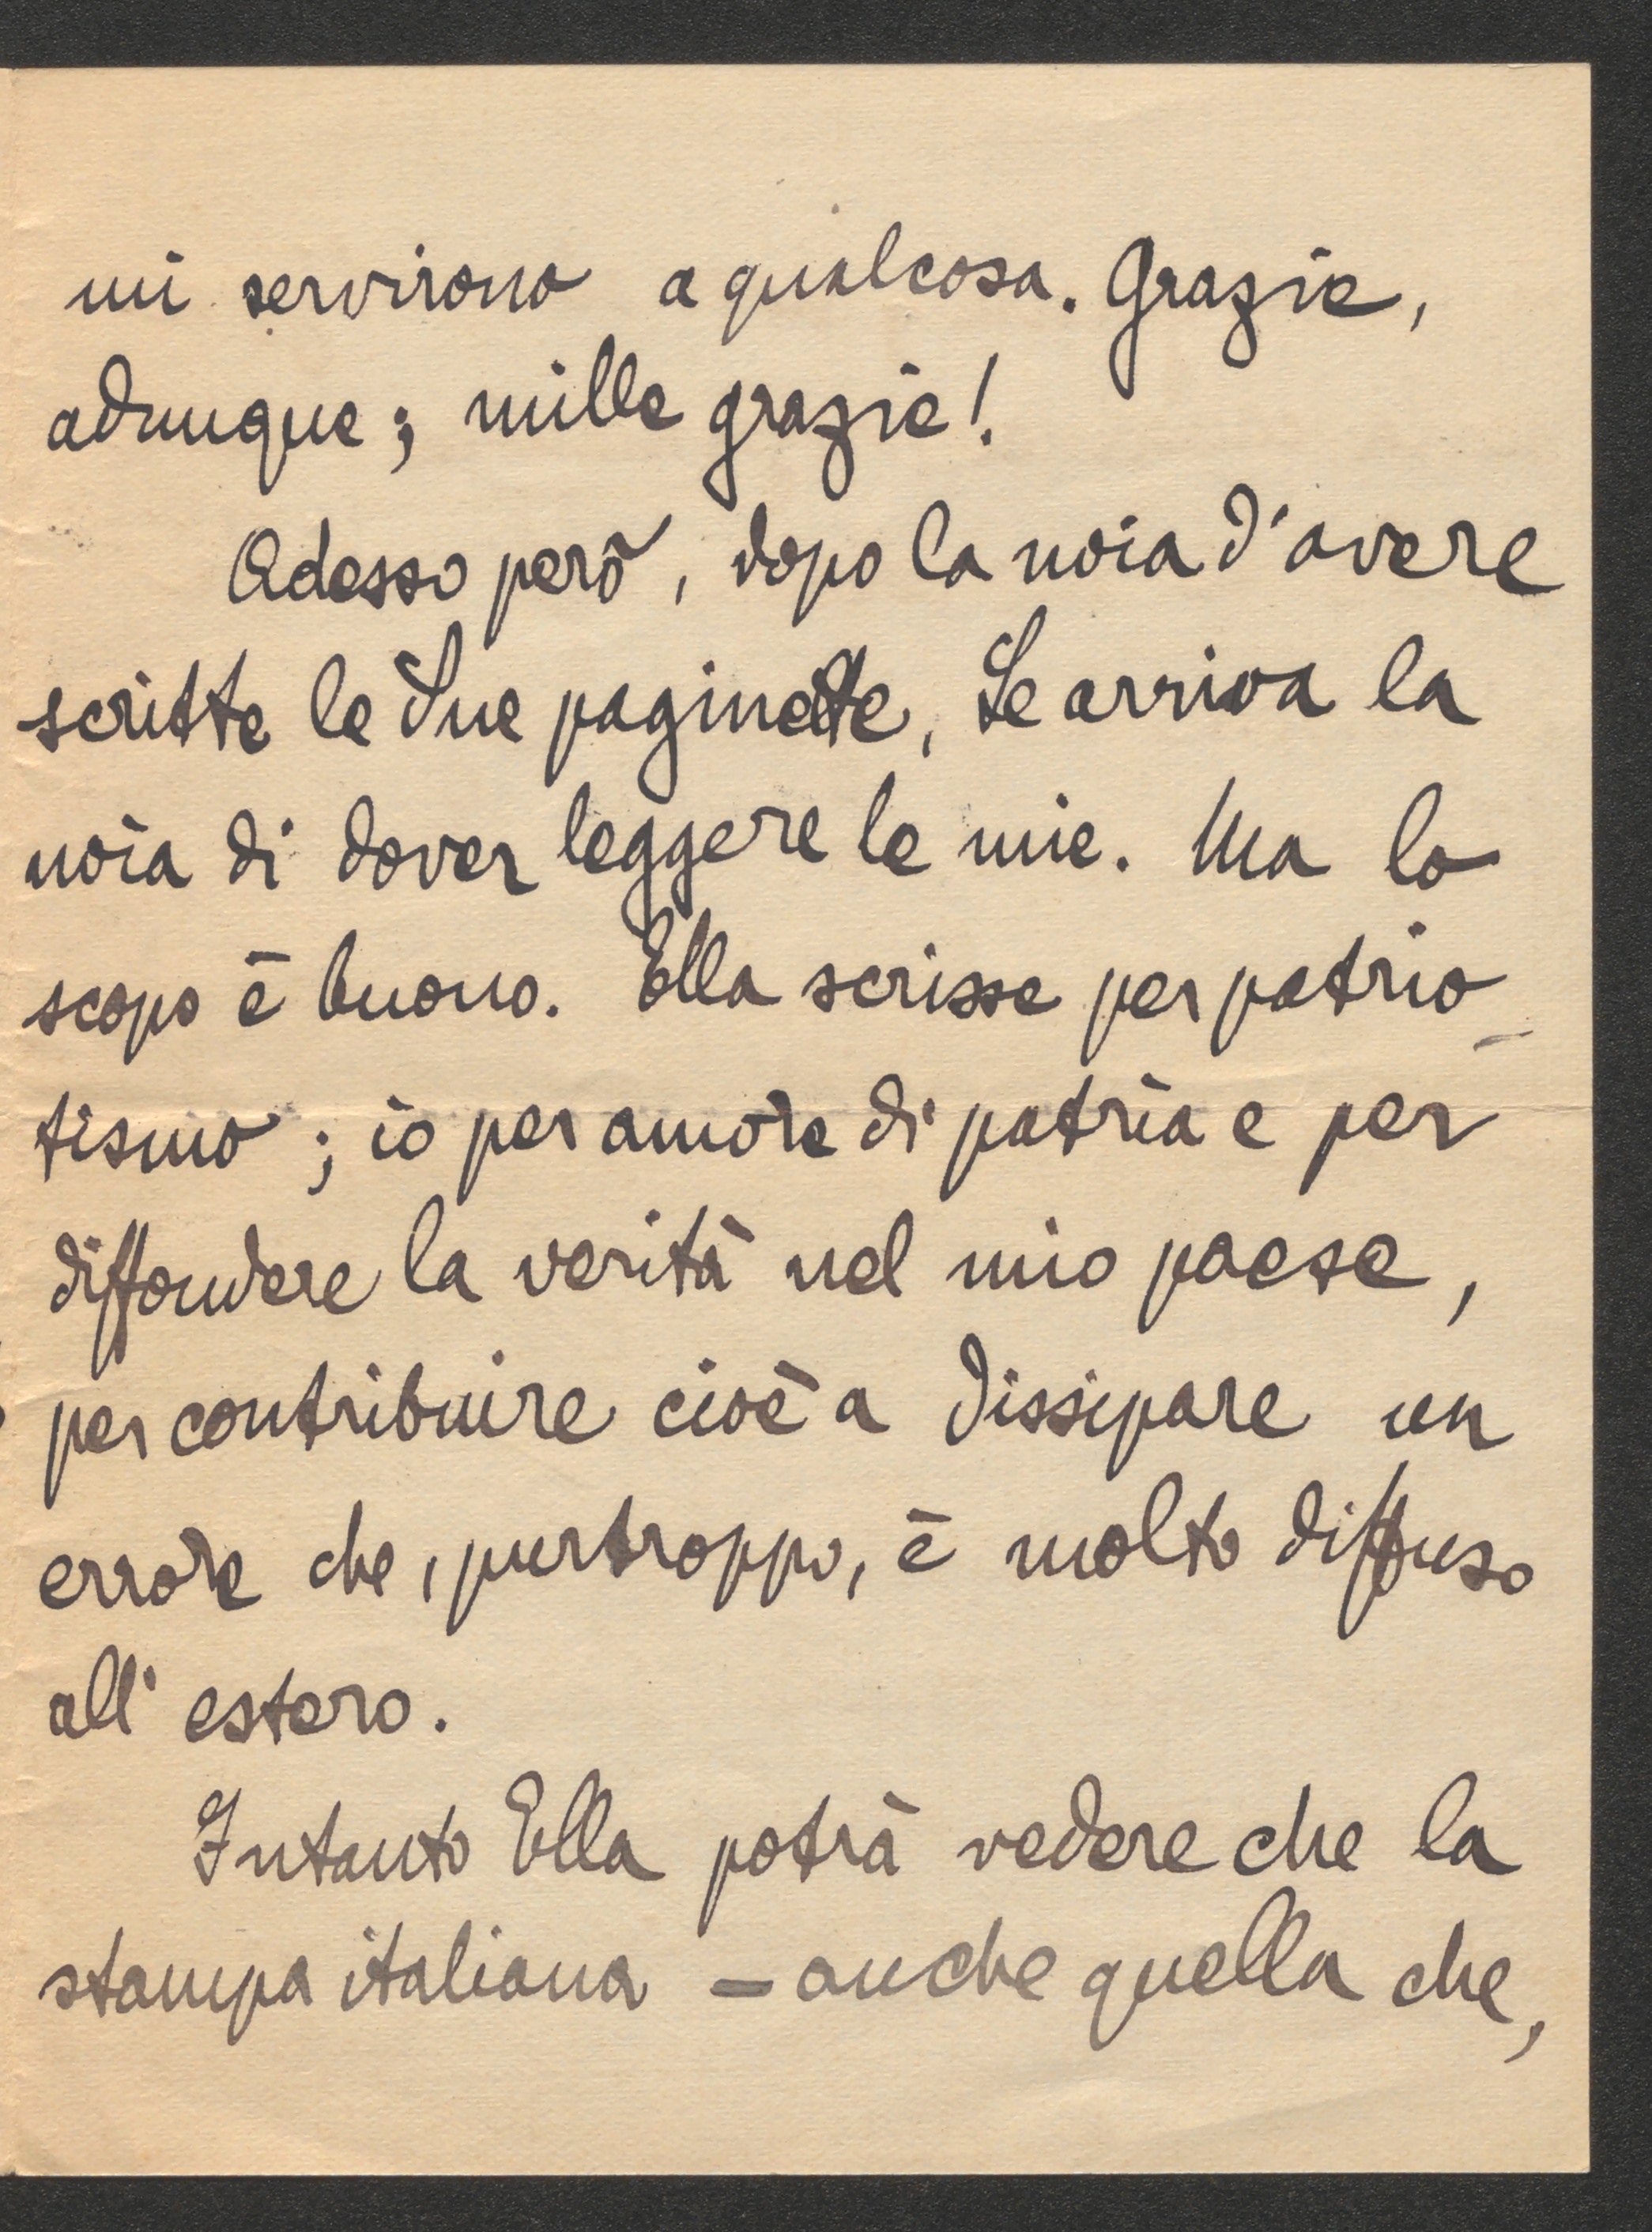 mi servirono a qualcosa. Grazie,
adunque; mille grazie!
Adesso però, dopo la noia d'avere
scritte le due paginette, Le arriva la
noia di dover leggere le mie. Ma lo
scopo è buono. Ella scrisse per patrio-
tismo; io per amore di patria e per
diffondere la verità nel mio paese,
per contribuire cioè a dissipare un
errore che, purtroppo, è molto diffuso
all'estero.
Intanto Ella potrà vedere che la
stampa italiana - anche quella che,